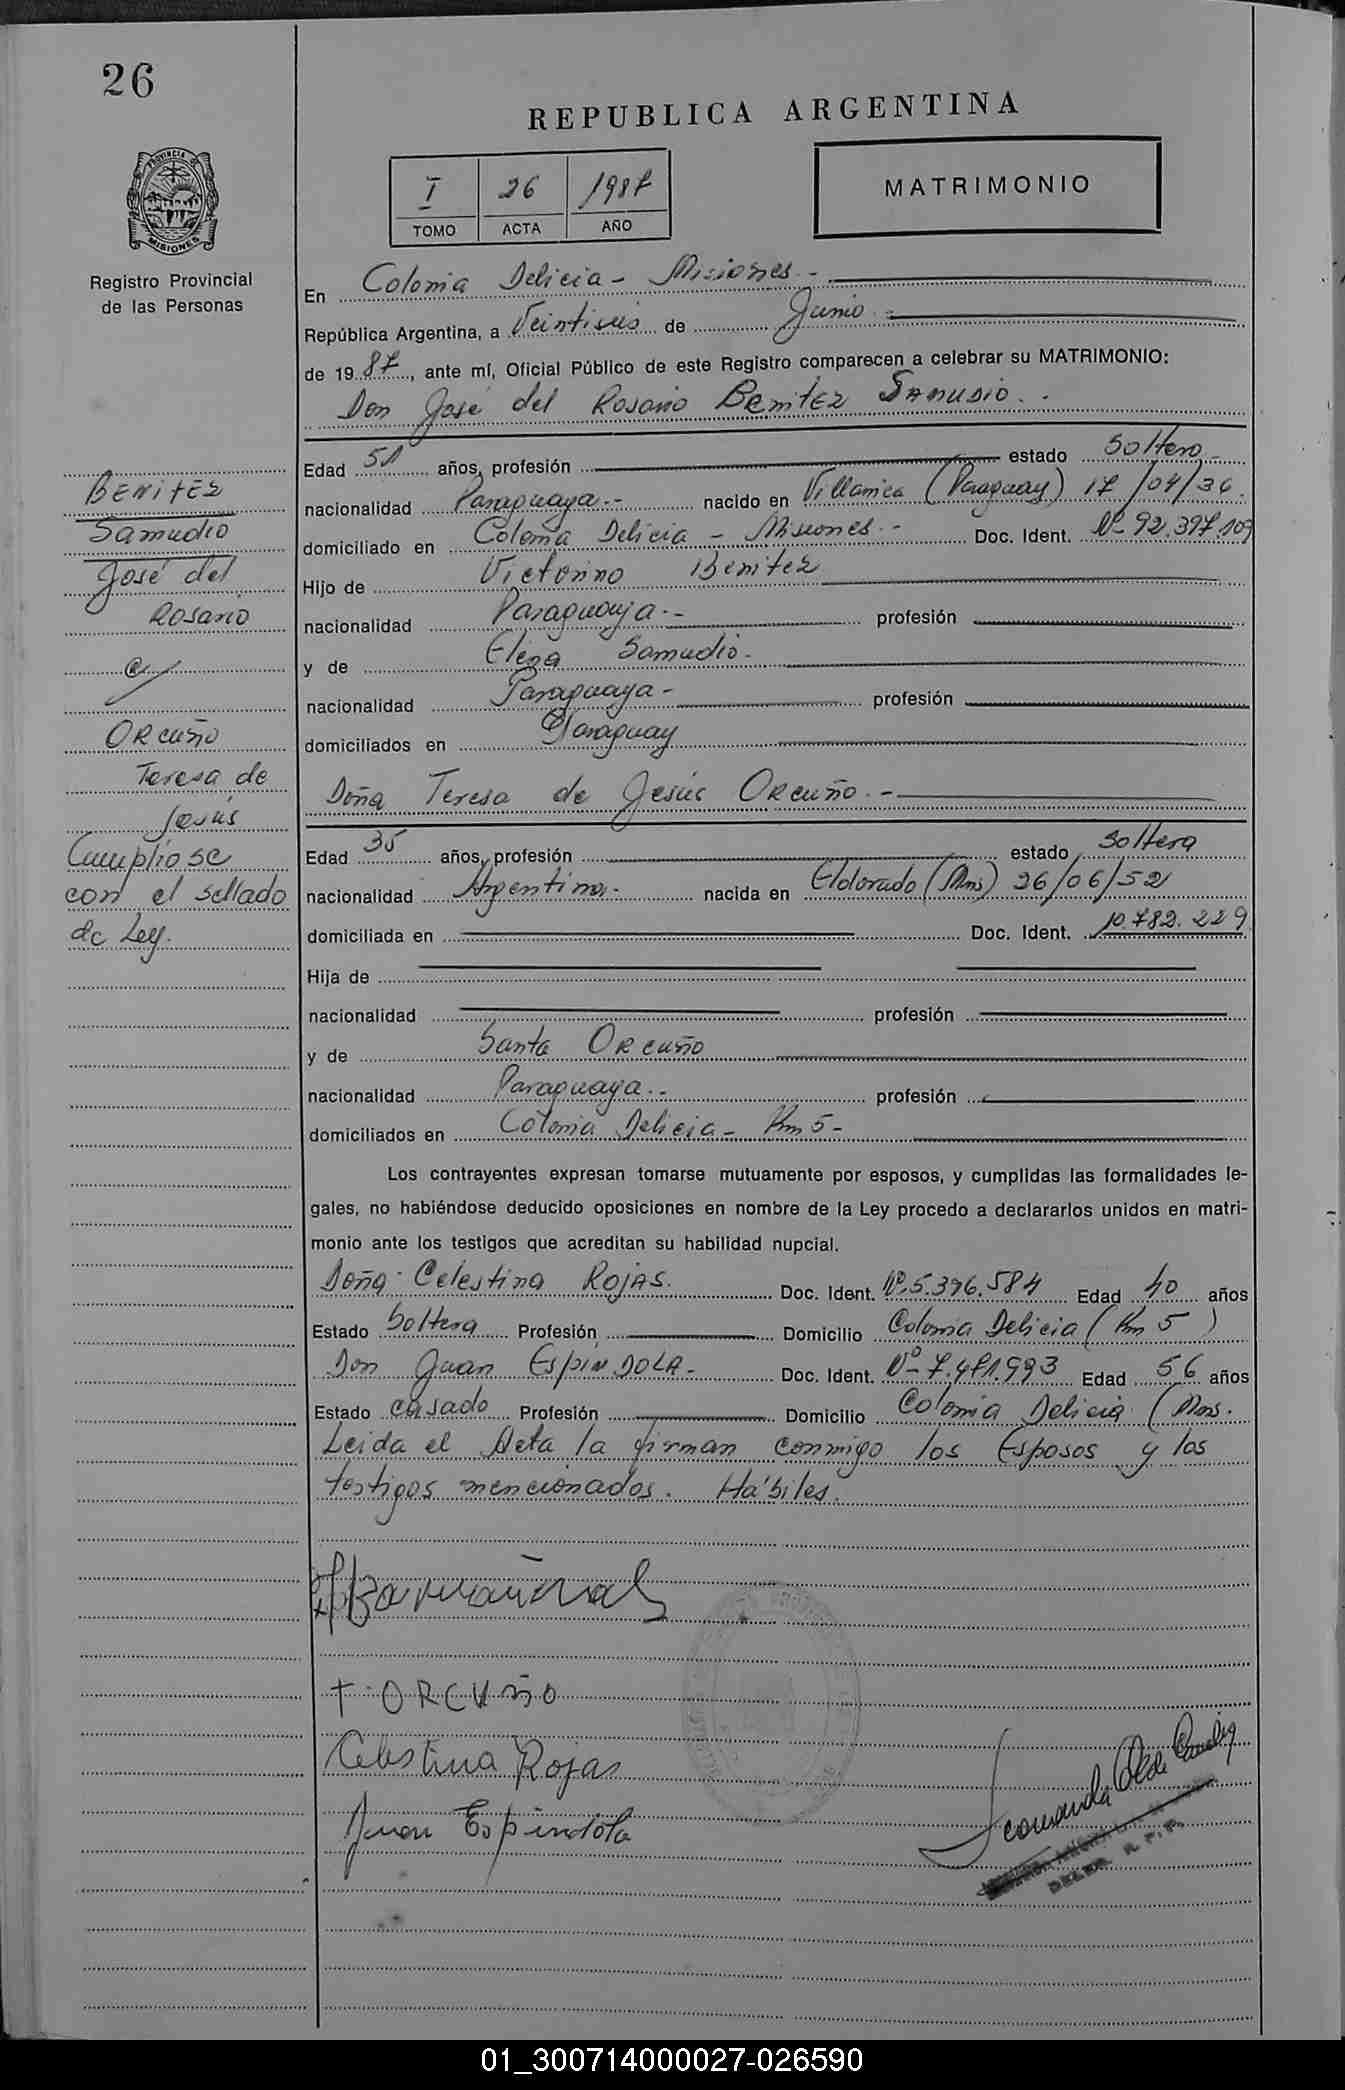 26
REPUBLICA ARGENTINA
I 26 1987
TOMO ACTA AÑO
MATRIMONIO
PROVINCIA DE
MISIONES
Registro Provincial
de las Personas
En Colonia Delicia - Misiones.-
República Argentina, a Veintiseis de Junio.=
de 1987, ante mí, Oficial Público de este Registro comparecen a celebrar su MATRIMONIO:
Don José del Rosario BENITEZ SAMUDIO. -
Edad 51 años, profesión estado Soltero-
nacionalidad Paraguaya.- nacido en Villarrica (Paraguay) 17/04/36.
domiciliado en Colonia Delicia - Misiones.- Doc. Ident. Nº 92.397.109
Hijo de Victorino Benitez
nacionalidad Paraguaya.- profesión
y de Elena Samudio.
nacionalidad Paraguaya- profesión
domiciliados en Paraguay
Doña Teresa de Jesús ORCUÑO.-
Edad 35 años, profesión estado Soltera
nacionalidad Argentina.- nacida en Eldorado (Mns) 26/06/52
domiciliada en Doc. Ident. 10.782.229
Hija de
nacionalidad profesión
y de Santa ORCUÑO
nacionalidad Paraguaya.- profesión
domiciliados en Colonia Delicia - Km 5-
BENITEZ
Samudio
José del
Rosario
c/
ORCUÑO
Teresa de
Jesús
Cumpliose
con el sellado
de Ley.
Los contrayentes expresan tomarse mutuamente por esposos, y cumplidas las formalidades le-
gales, no habiéndose deducido oposiciones en nombre de la Ley procedo a declararlos unidos en matri-
monio ante los testigos que acreditan su habilidad nupcial.
Doña Celestina ROJAS. Doc. Ident. Nº 5.396.584 Edad 40 años
Estado Soltera Profesión Domicilio Colonia Delicia (Km 5)
Don Juan ESPINDOLA- Doc. Ident. Nº 7.471.993 Edad 56 años
Estado casado Profesión Domicilio Colonia Delicia (Mns.
Leida el Acta la firman conmigo los Esposos y los
testigos mencionados. Hábiles.
T. ORCUÑO
Celestina Rojas
Juan Espindola
01_300714000027-026590